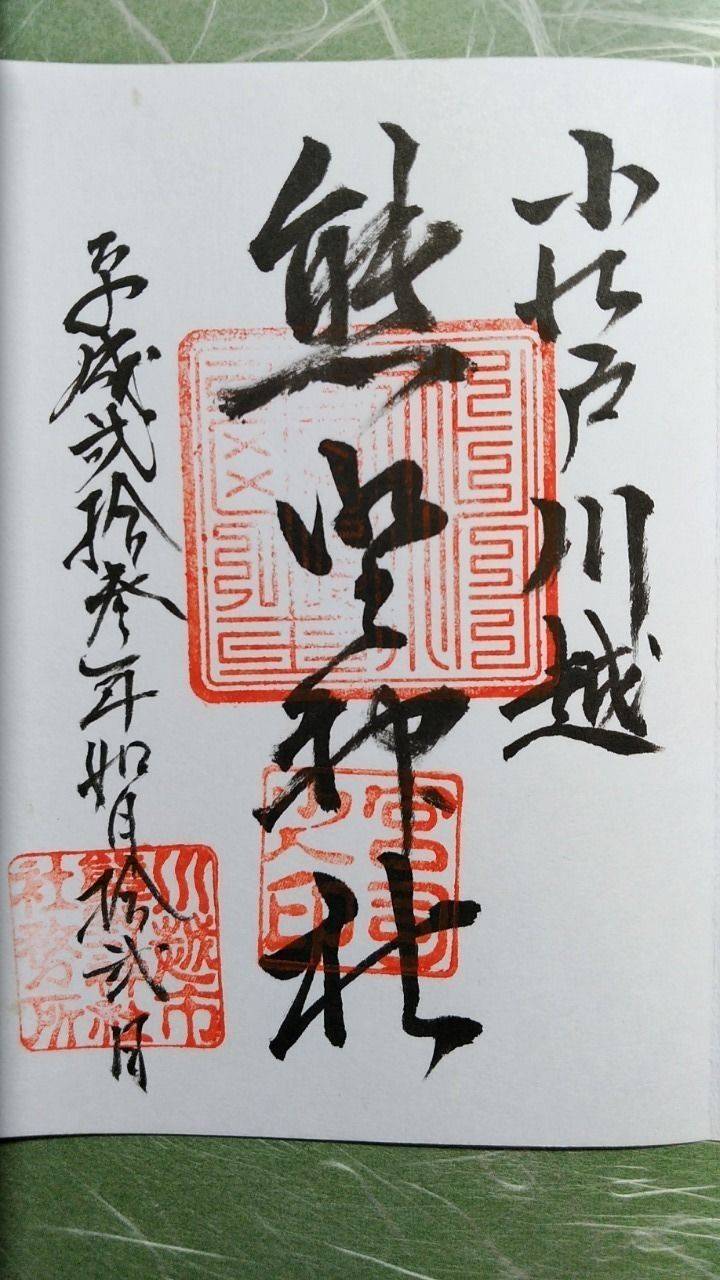 小江戸川越
熊野神社
平成弐拾参年如月拾弐日
宮司之印
川越市
熊野神社
社務所